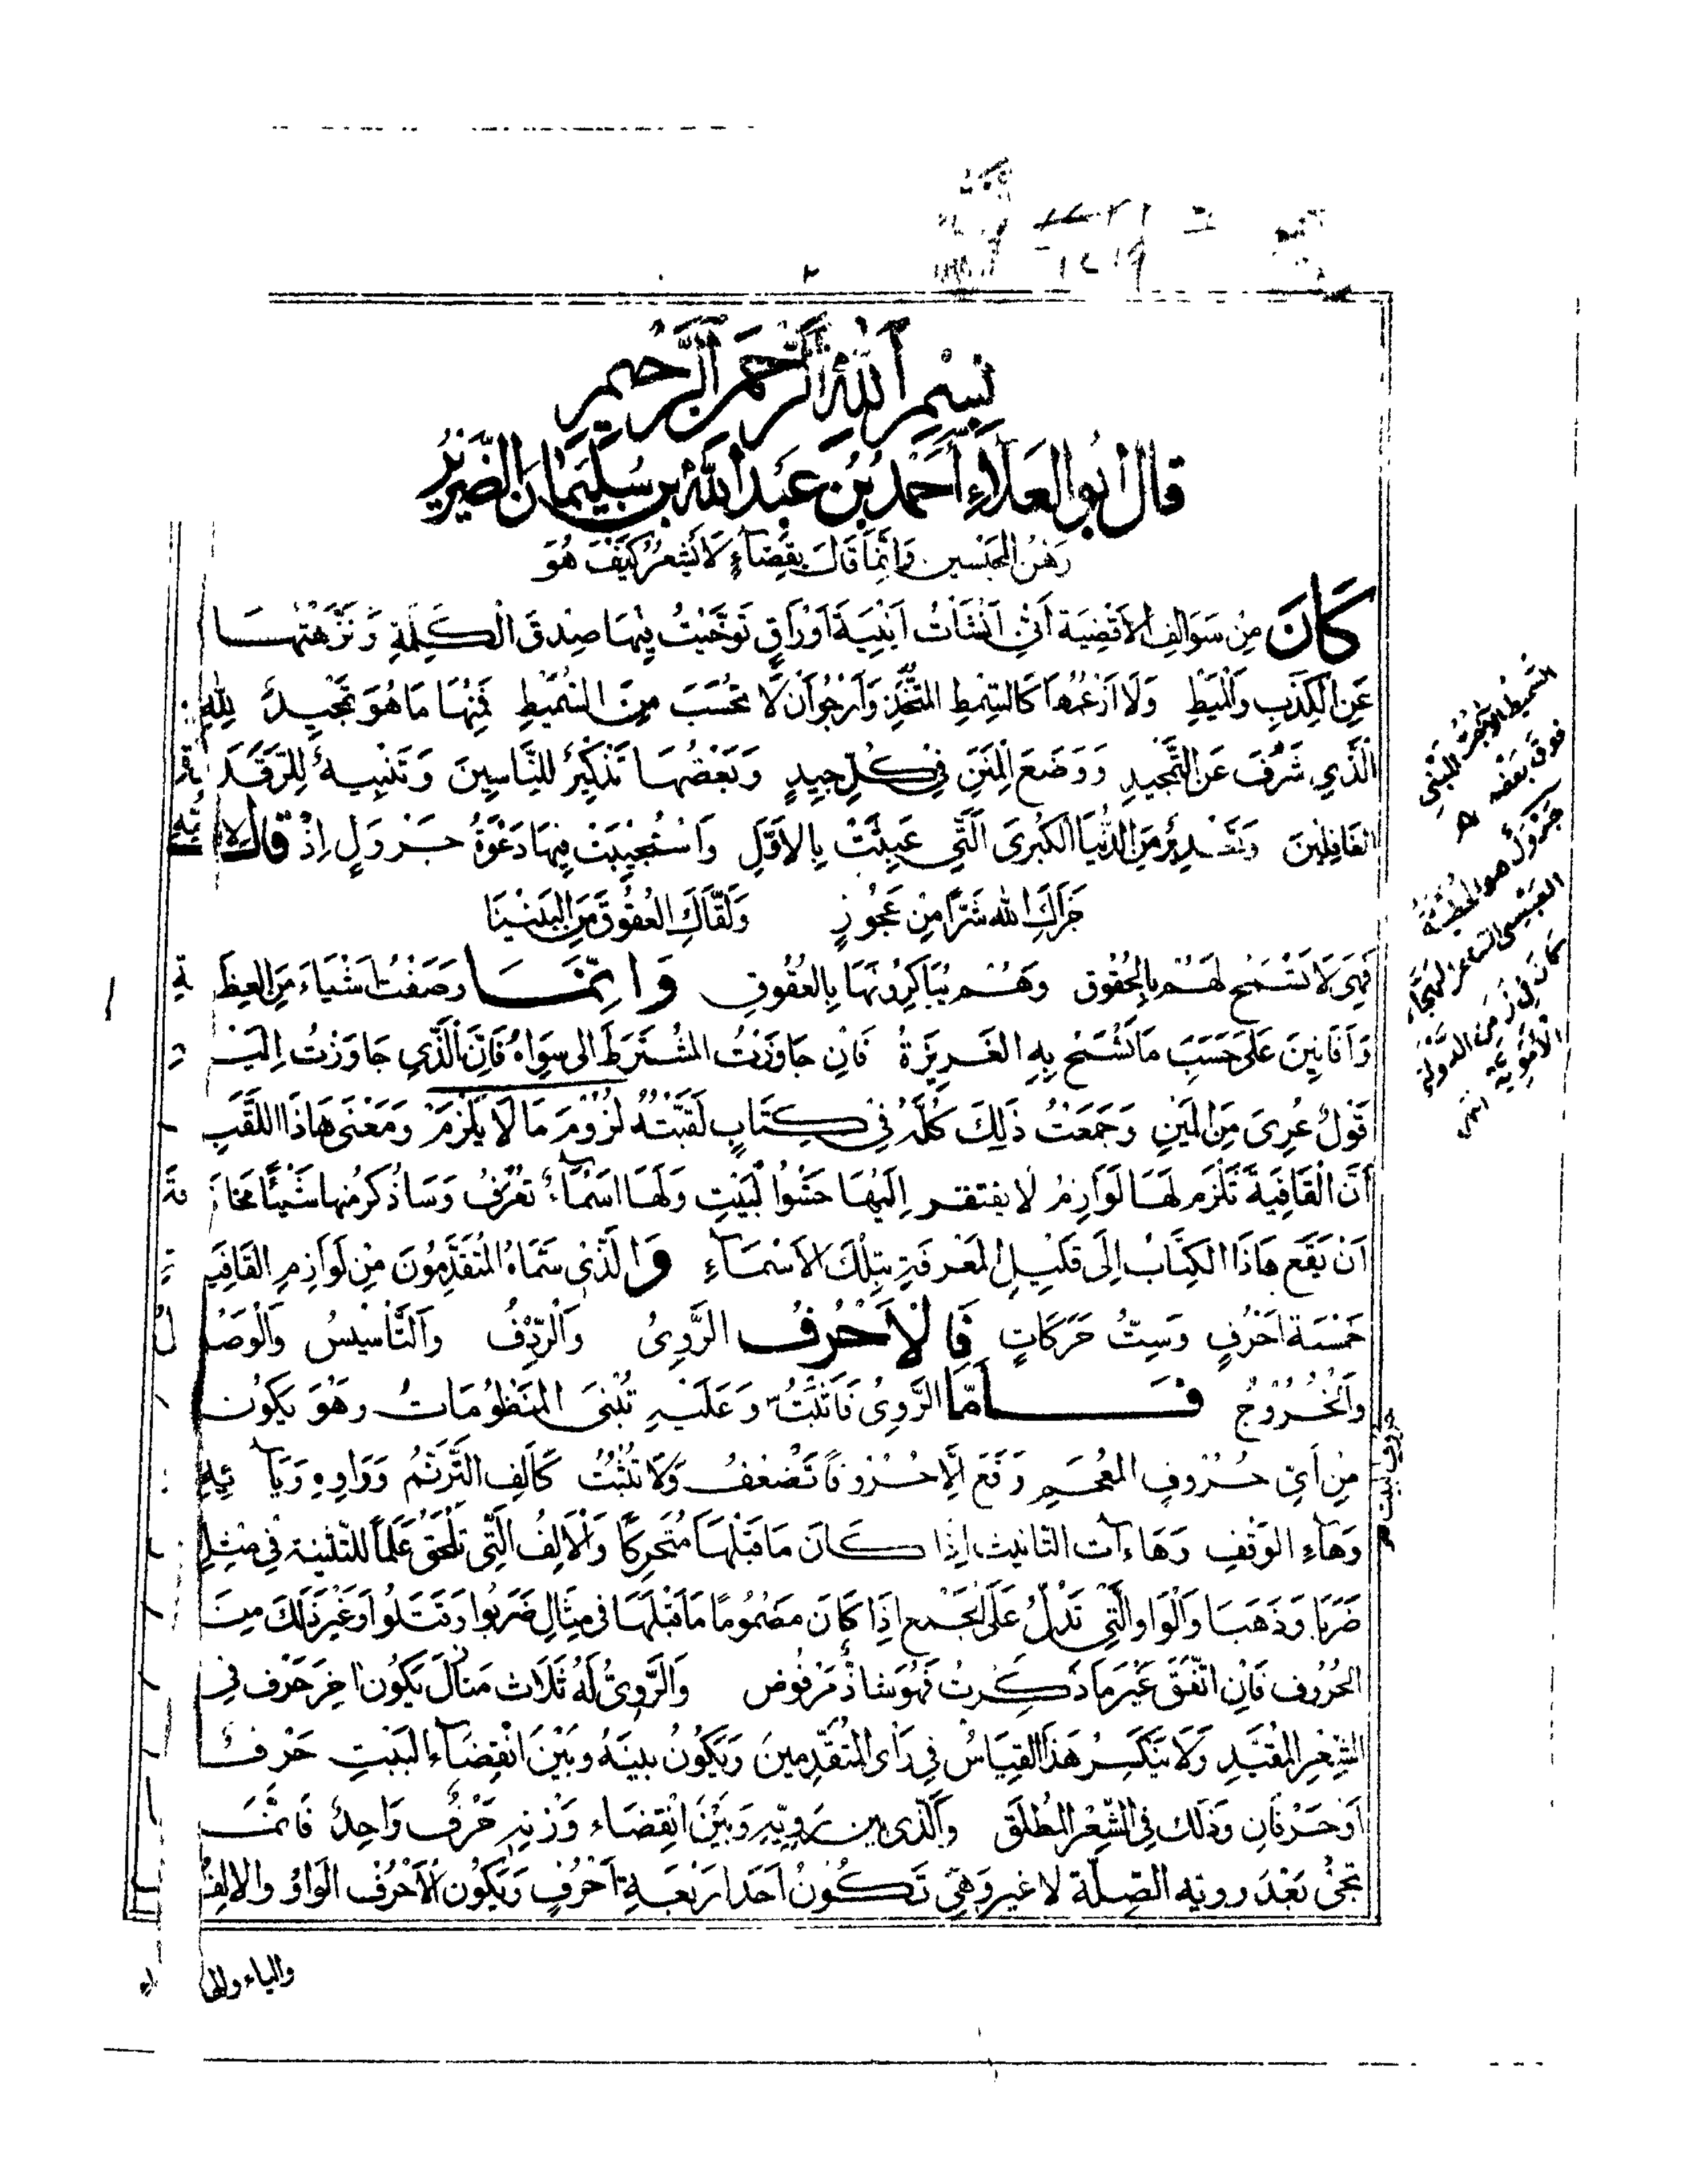 بِسْمِ اللهِ الرَّحْمٰنِ الرَّحِيمِ
قال أبو العلاء أحمد بن عبد الله بن سليمان الضرير
رهن المحبسين وإنما قال بقضاء لا يشعر كيف هو
كَانَ من سوالف الأقضية أني أنشأت أبنية أوراق توخيت فيها صدق الكلمة ونزهتها
عن الكذب والميط ولا أزعمها كالسمط المتخذ وأرجو أن لا تحسب من السميط فمنها ما هو تمجيد لله
الذي شرف عن التمجيد ووضع المنن في كل جيد وبعضها تذكير للناسين وتنبيه للرقدة
الغافلين وتحذير من الدنيا الكبرى التي عبثت بالأول واستجيبت فيها دعوة جرول إذ قال لأمه
جزاك الله شرا من عجوز ولقاك العقوق من البنينا
فهي لا تسمح لهم بالحقوق وهم يباكرونها بالعقوق وإنما وصفت أشياء من العظة
وأفانين على حسب ما تسمح به الغريزة فإن جاوزت المشترط إلى سواه فإن الذي جاوزت إليه
قول عري من المين وجمعت ذلك كله في كتاب لقبته لزوم ما لا يلزم ومعنى هاذا اللقب
أن القافية تلزم لها لوازم لا يفتقر إليها حشو البيت ولها أسماء تعرف وسأذكر منها شيئا مخافة
أن يقع هاذا الكتاب إلى قليل المعرفة بتلك الأسماء والذي سماه المتقدمون من لوازم القافية
خمسة أحرف وست حركات فالأحرف الروي والردف والتأسيس والوصل
والخروج فأما الروي فأثبت وعليه تبنى المنظومات وهو يكون
من أي حروف المعجم وقع إلا حروفا تضعف ولا تثبت كألف الترنم وواوه ويائه
وهاء الوقف وهاءات التأنيث إذا كان ما قبلها متحركا والألف التي تلحق علما للتثنية في مثل
ضربا وذهبا والواو التي تدل على الجمع إذا كان مضموما ما قبلها في مثال ضربوا وقتلوا وغير ذلك من
الحروف فإن اتفق غير ما ذكرت فهو شاذ مرفوض والروي له ثلاث منازل يكون آخر حرف في
الشعر المقيد ولا ينكسر هذا القياس في رأي المتقدمين ويكون بينه وبين انقضاء البيت حرف
أو حرفان وذلك في الشعر المطلق والذي بين رويه وبين انقضاء وزنه حرف واحد فإنما
تجئ بعد رويه الصلة لا غير وهي تكون أحد أربعة أحرف ويكون الأحرف الواو والالف
والياء والهاء
السميط الآجر المبني
فوق بعضه
جرول هو الحطيئة
العبسي الشاعر الهجاء
كان في زمن الدولة
الأموية انتهى